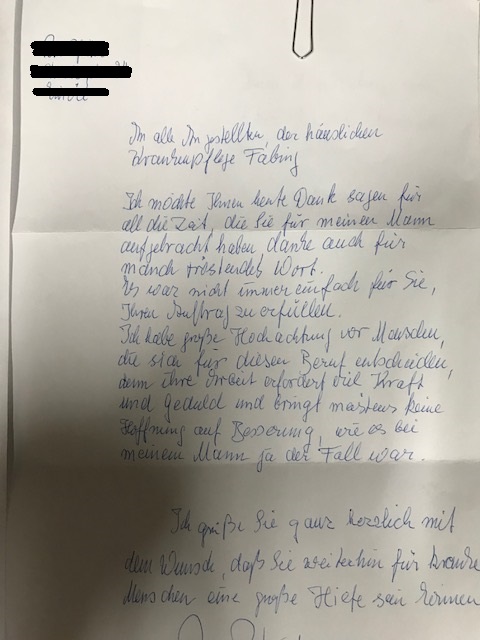 An alle Angestellten der häuslichen
Krankenpflege Fabing
Ich möchte Ihnen heute Dank sagen für
all die Zeit, die Sie für meinen Mann
aufgebracht haben danke auch für
manch tröstendes Wort.
Es war nicht immer einfach für Sie,
Ihren Auftrag zu erfüllen.
Ich habe große Hochachtung vor Menschen,
die sich für diesen Beruf entscheiden,
denn ihre Arbeit erfordert viel Kraft
und Geduld und bringt meistens keine
Hoffnung auf Besserung, wie es bei
meinem Mann ja der Fall war.
Ich grüße Sie ganz herzlich mit
dem Wunsch, daß Sie weiterhin für kranke
Menschen eine große Hilfe sein können